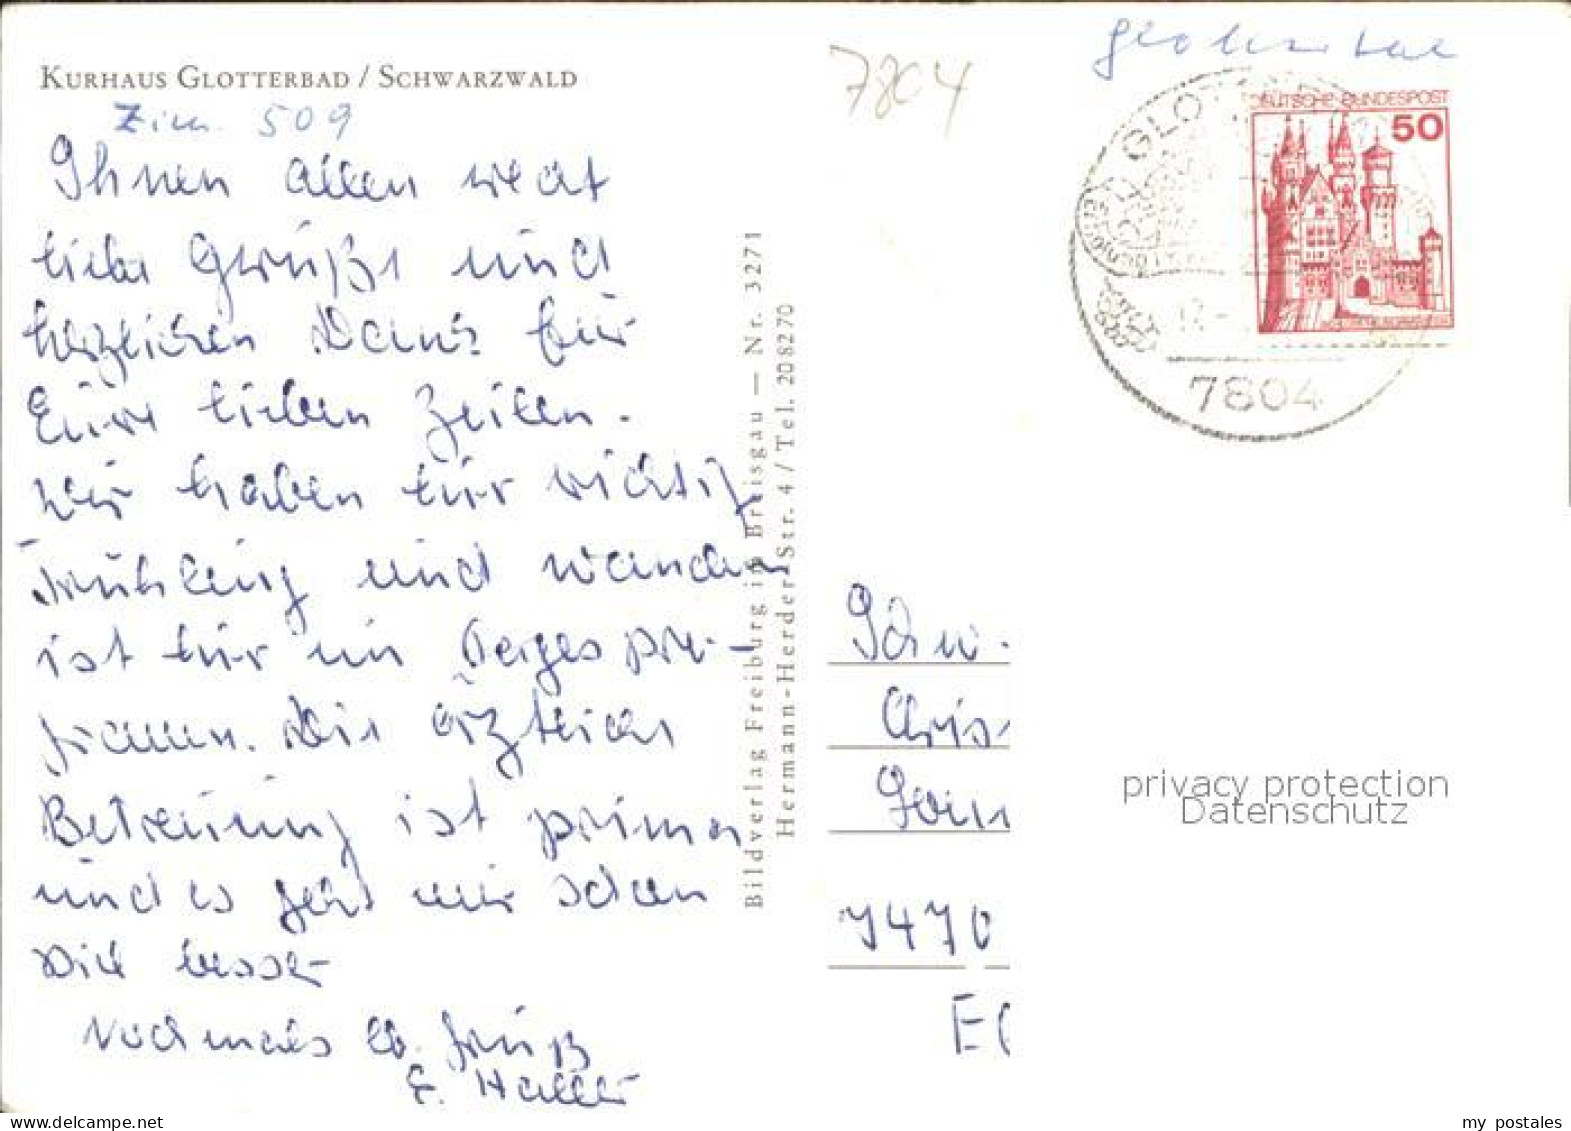 KURHAUS GLOTTERBAD / SCHWARZWALD
Zim. 509
Ihnen allen recht
liebe Grüße und
herzlichen Dank für
Eure lieben Zeilen.
Wir haben hier richtig
Frühling und wandern
ist hier ein
Die ärztliche
Betreuung ist prima
und es geht mir schon
viel besser
Nochmals lb. Grüße
E. Haller
Bildverlag Freiburg im Breisgau — Nr. 3271
Hermann-Herder-Str. 4 / Tel. 208270
7804
Glottertal
DEUTSCHE BUNDESPOST
50
7804
Schw.
Chris
7470
privacy protection
Datenschutz
www.delcampe.net
my_postales